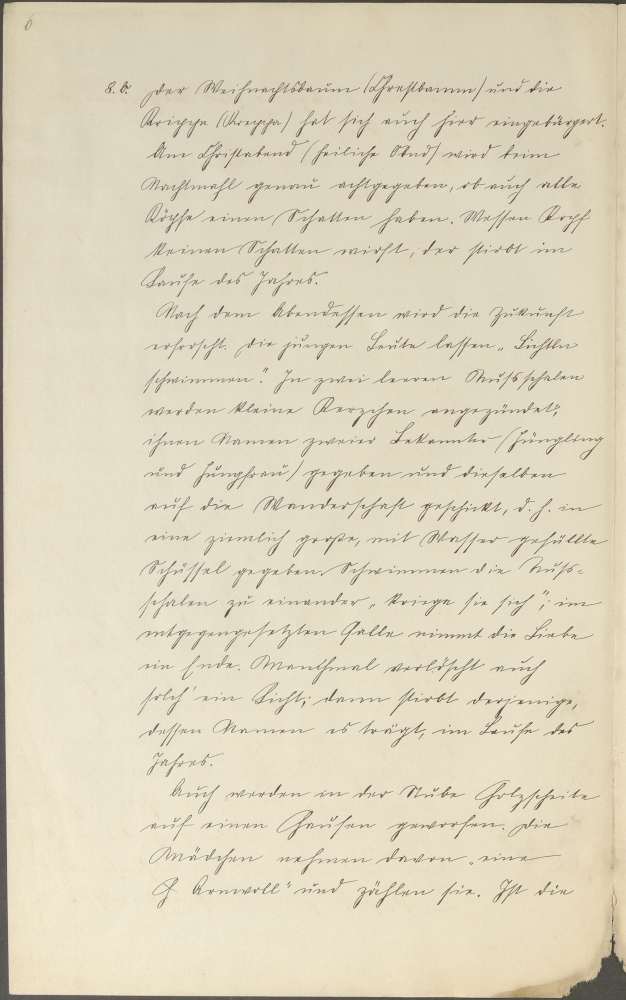 8. b. Der Weihnachtsbaum (Chrestbamm) und die
Krippe (Kreppa) hat sich auch hier eingebürgert.
Am Christabend (heiliche Obnd) wird beim
Nachtmahl genau achtgegeben, ob auch alle
Köpfe einen Schatten haben. Wessen Kopf
keinen Schatten wirft, der stirbt im
Laufe des Jahres.
Nach dem Abendessen wird die Zukunft
erforscht. Die jungen Leute lassen „Lichtln
schwimmen". In zwei leeren Nußschalen
werden kleine Kerzchen angezündet,
ihnen Namen zweier Bekannter (Jüngling
und Jungfrau) gegeben und dieselben
auf die Wanderschaft geschickt, d. h. in
eine ziemlich große, mit Wasser gefüllte
Schüssel gegeben. Schwimmen die Nuß-
schalen zu einander „kriega sie sich"; im
entgegengesetzten Falle nimmt die Liebe
ein Ende. Manchmal verlöscht auch
solch' ein Licht; dann stirbt derjenige,
dessen Namen es trägt, im Laufe des
Jahres.
Auch werden in der Stube Holzscheite
auf einen Haufen geworfen. Die
Mädchen nehmen davon „eine
Armvoll" und zählen sie. Ist die